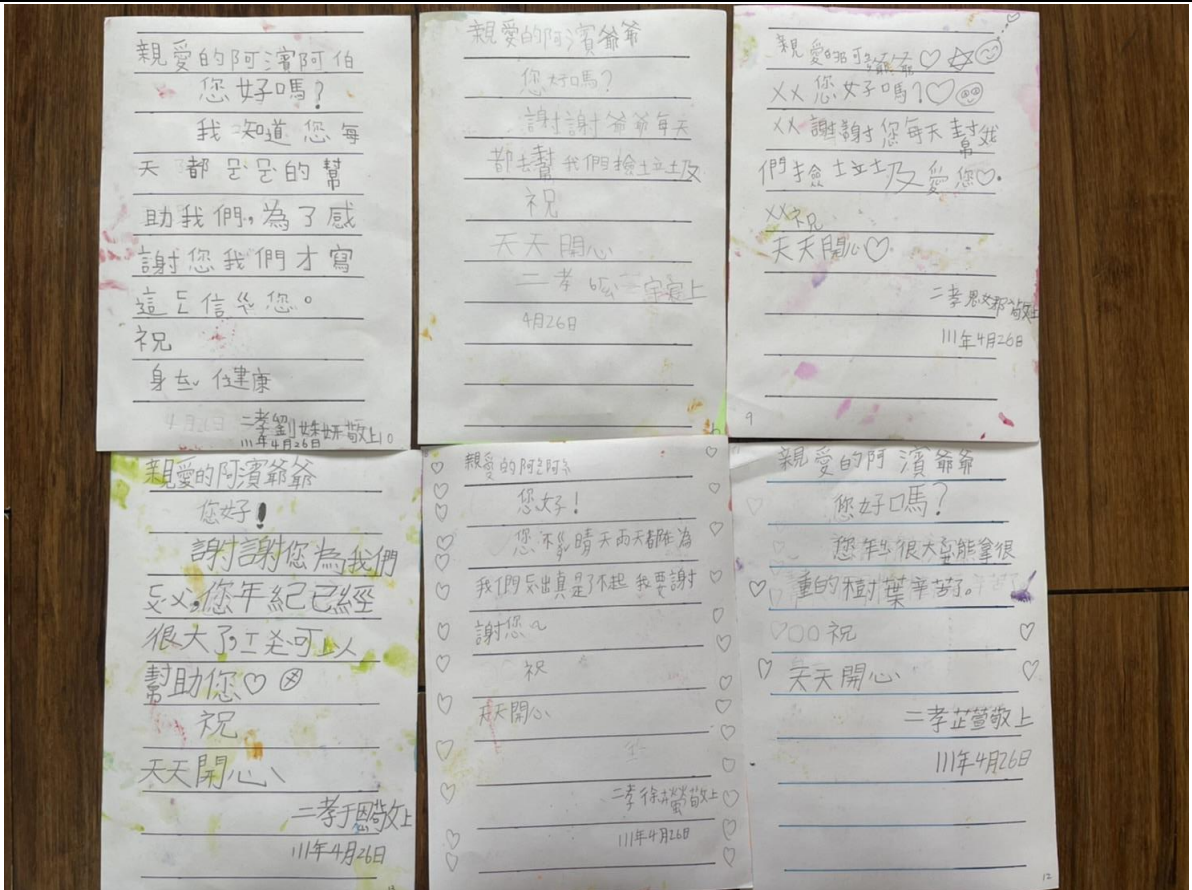 親愛的阿濱阿伯
您好嗎?
我知道您每
天都ㄛㄛ的幫
助我們,為了感
謝您我們才寫
這ㄈ信給您。
祝
身ㄊ健康
4月26日
二孝劉姝妍敬上
111年4月26日
10
親愛的阿濱爺爺
您好嗎?
謝謝爺爺每天
都去幫我們撿垃圾
祝
天天開心
二孝
敬上
4月26日
親愛的阿爺爺♡☆
XX您好嗎?♡
XX謝謝您每天幫我
們撿垃圾愛您♡.
XX祝
天天開心♡
二孝思郡敬上
111年4月26日
9
親愛的阿濱爺爺
您好!
謝謝您為我們
,您年紀已經
很大了,可以
幫助您♡
祝
天天開心
二孝于恩敬上
111年4月26日
親愛的阿
您好!
您不晴天雨天都在為
我們出真是了不起 我要謝
謝您~
祝
天天開心
二孝徐敬上
111年4月26日
親愛的阿濱爺爺
您好嗎?
您年很大要能拿很
重的樹葉辛苦了。
○○祝
天天開心
二孝芷萱敬上
111年4月26日
12